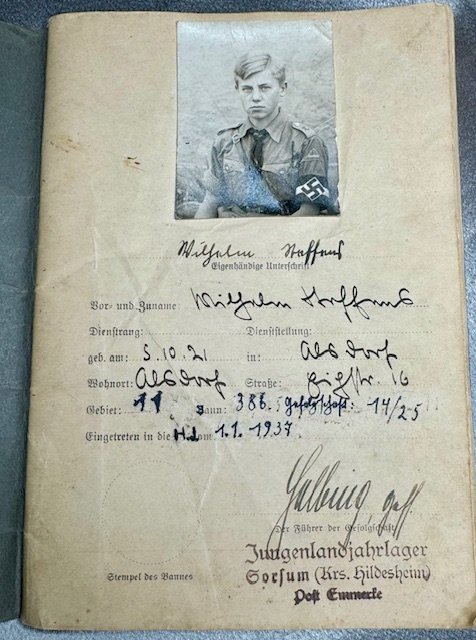 Wilhelm Steffens
Eigenhändige Unterschrift
Vor- und Zuname: Wilhelm Steffens
Dienstrang: Dienststellung:
geb. am: 5.10.21 in: Alsdorf
Wohnort: Alsdorf Straße: 16
Gebiet: 11 Bann: 386. Gefolgschaft: 14/25
Eingetreten in die H.J. vom 1.1.1937
Der Führer der Gefolgschaft
Jungenlandjahrlager
Sorsum (Krs. Hildesheim)
Stempel des Bannes Post Emmerke